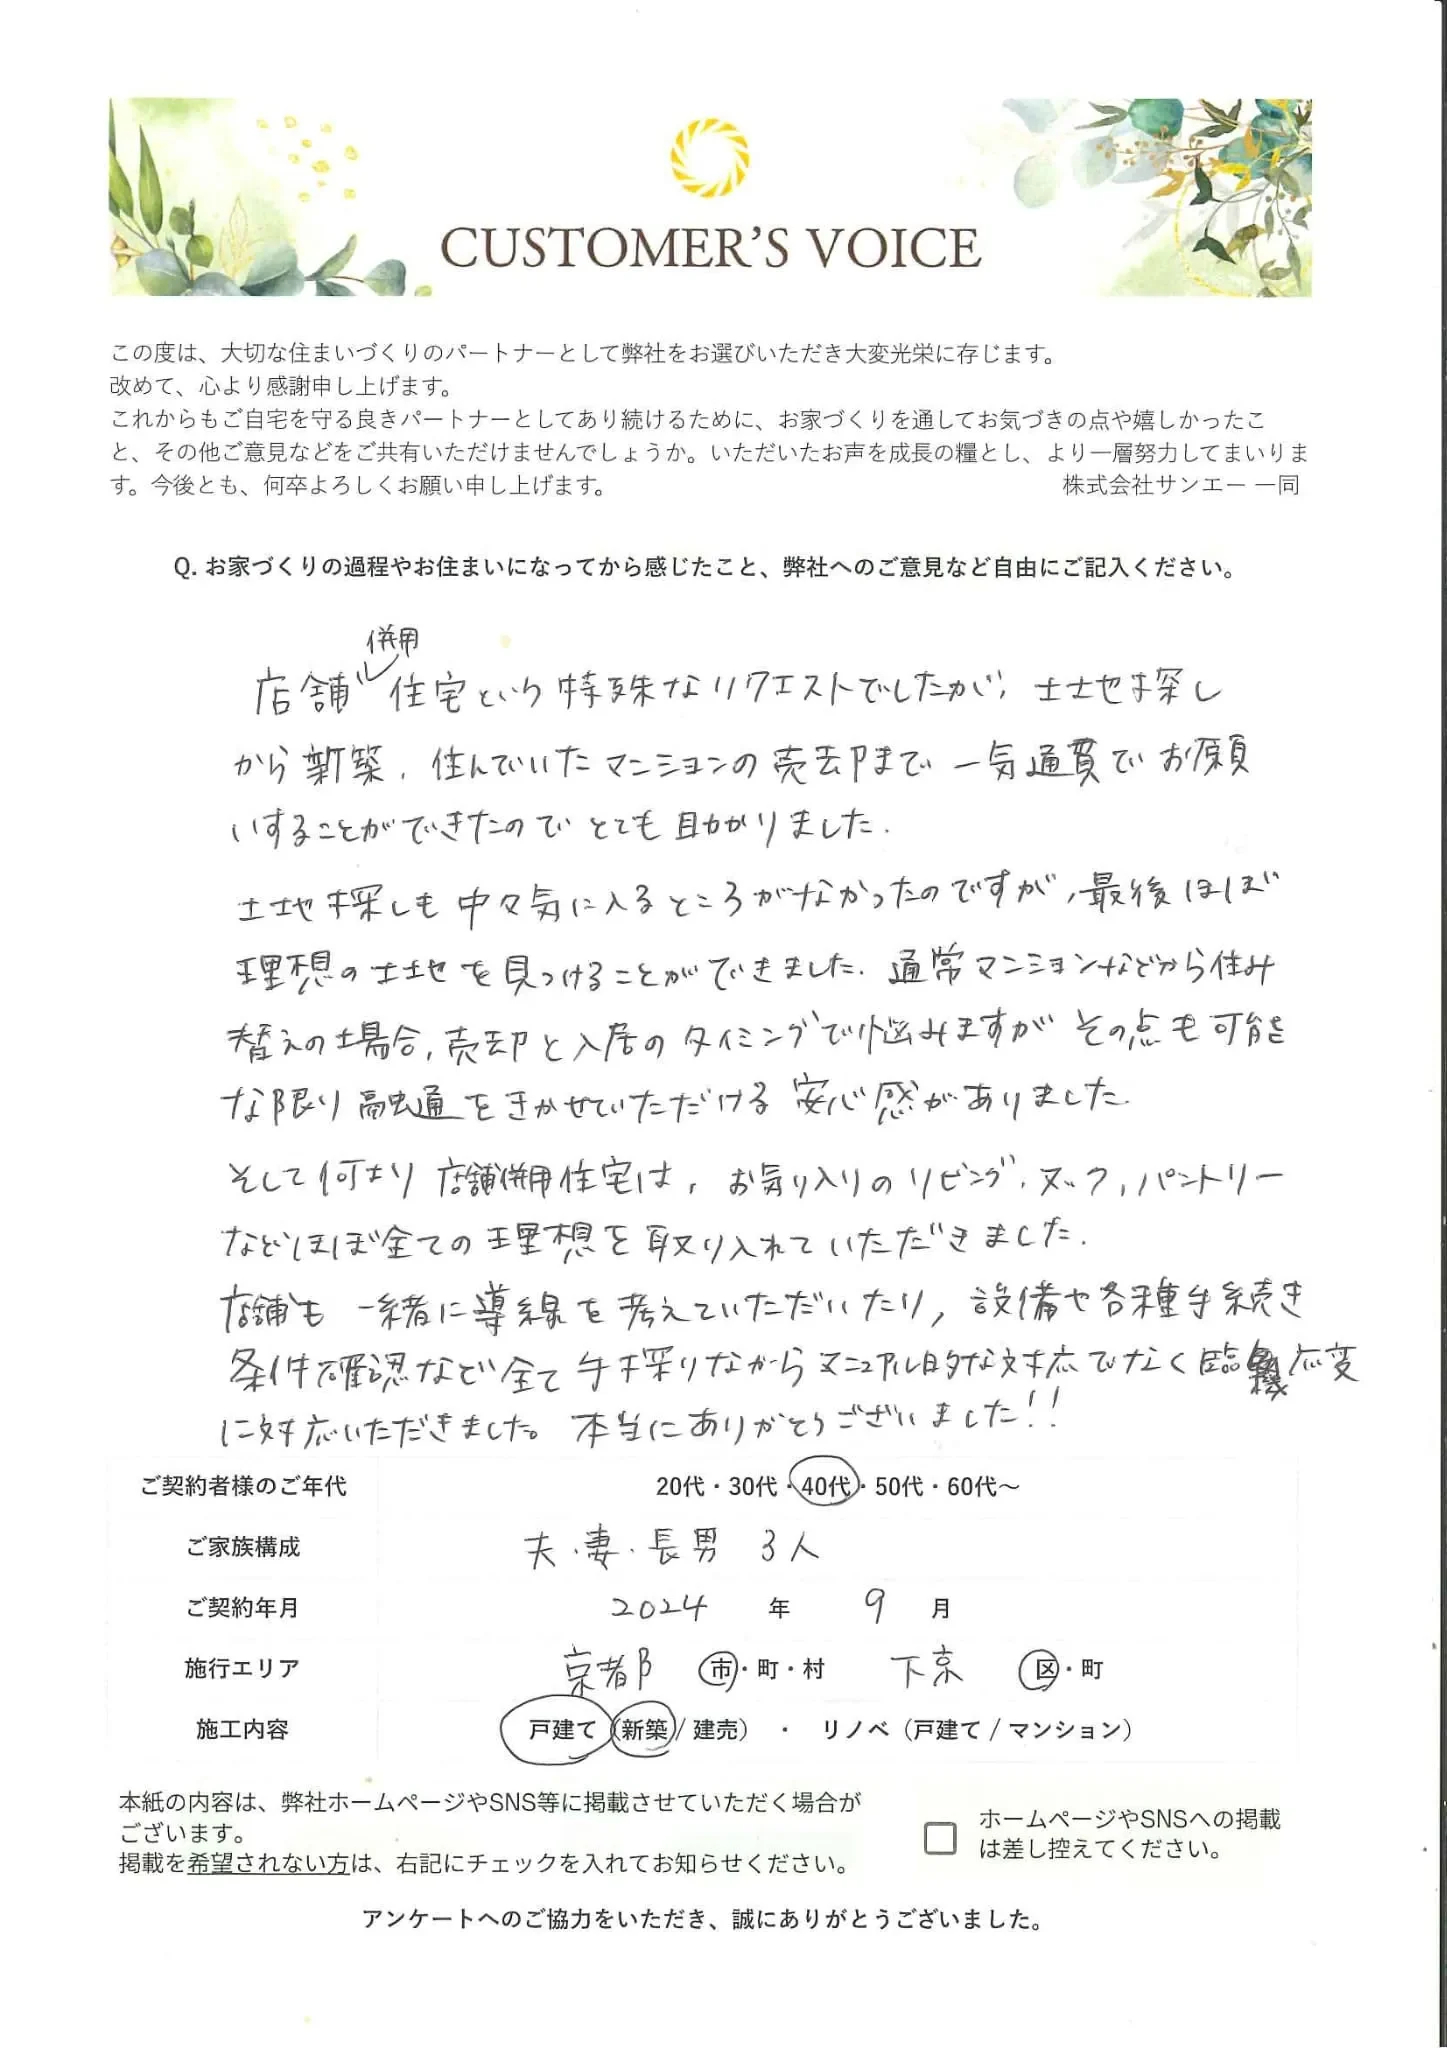 CUSTOMER'S VOICE
この度は、大切な住まいづくりのパートナーとして弊社をお選びいただき大変光栄に存じます。
改めて、心より感謝申し上げます。
これからもご自宅を守る良きパートナーとしてあり続けるために、お家づくりを通してお気づきの点や嬉しかったこ
と、その他ご意見などをご共有いただけませんでしょうか。いただいたお声を成長の糧とし、より一層努力してまいりま
す。今後とも、何卒よろしくお願い申し上げます。 株式会社サンエー 一同
Q. お家づくりの過程やお住まいになってから感じたこと、弊社へのご意見など自由にご記入ください。
店舗併用住宅という特殊なリクエストでしたが、土地探し
から新築、住んでいたマンションの売却まで一気通貫でお願
いすることができたのでとても助かりました。
土地探しも中々気に入るところがなかったのですが、最後ほぼ
理想の土地を見つけることができました。通常マンションなどから住み
替えの場合、売却と入居のタイミングで悩みますがその点も可能
な限り融通をきかせていただける安心感がありました。
そして何より店舗併用住宅は、お気り入りのリビング、ヌック、パントリー
などほぼ全ての理想を取り入れていただきました。
店舗も一緒に導線を考えていただいたり、設備や各種手続き
条件確認など全て手探りながらマニュアル的な対応でなく臨機応変
に対応いただきました。本当にありがとうございました!!
ご契約者様のご年代 20代・30代・40代・50代・60代～
ご家族構成 夫・妻・長男 3人
ご契約年月 2024 年 9 月
施行エリア 京都 市・町・村 下京 区・町
施工内容 戸建て（新築 / 建売）・ リノベ（戸建て / マンション）
本紙の内容は、弊社ホームページやSNS等に掲載させていただく場合が
ございます。
掲載を希望されない方は、右記にチェックを入れてお知らせください。
ホームページやSNSへの掲載
は差し控えてください。
アンケートへのご協力をいただき、誠にありがとうございました。